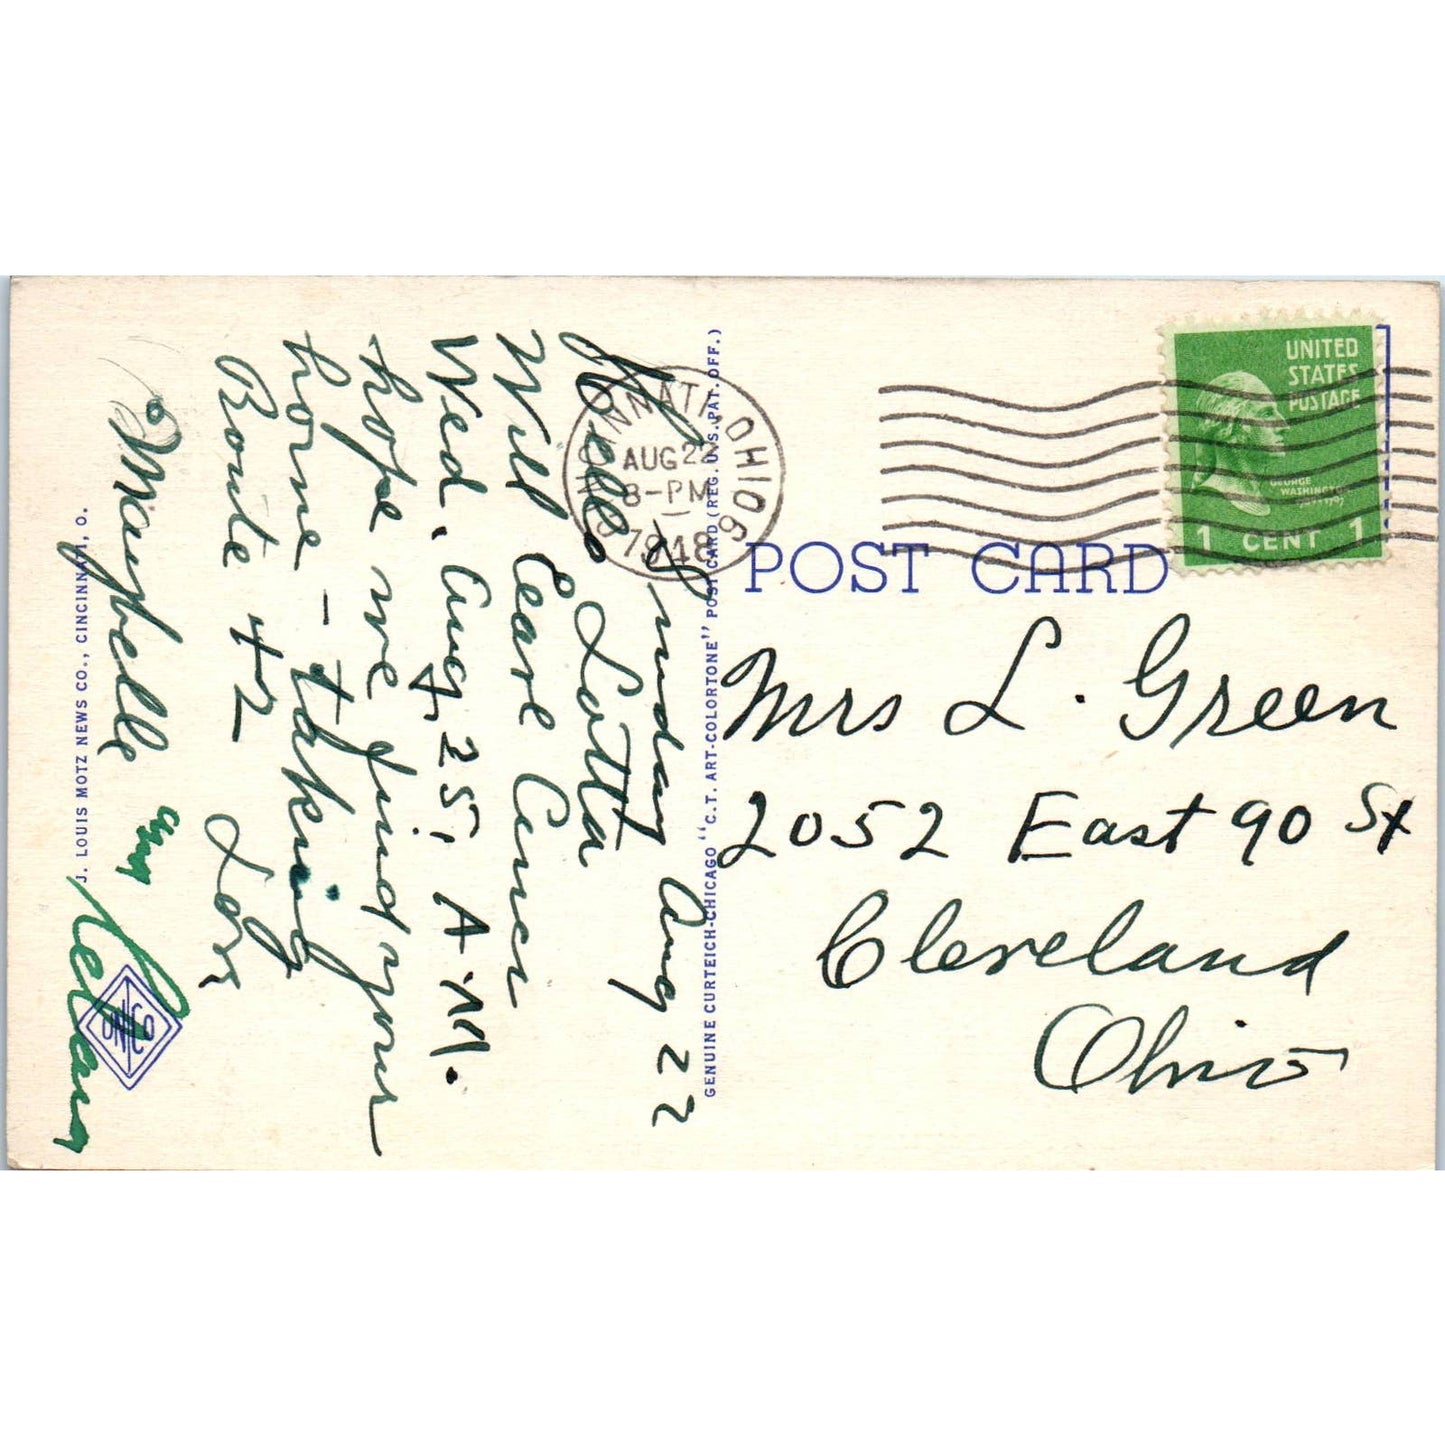 Sunday Aug 22
Hello Lotta
Will Leave Cinci
Wed. Aug, 25, A.M.
+ hope we find your
home - taking
Route 42
Love
Maybelle and
J. LOUIS MOTZ NEWS CO., CINCINNATI, O.
GENUINE CURTEICH-CHICAGO "C.T. ART-COLORTONE" POST CARD (REG. U.S. PAT. OFF.)
CINCINNATI, OHIO
AUG 22
8-PM
1948
POST CARD
UNITED
STATES
POSTAGE
GEORGE
WASHINGTON
1 CENT 1
Mrs L. Green
2052 East 90 St
Cleveland
Ohio